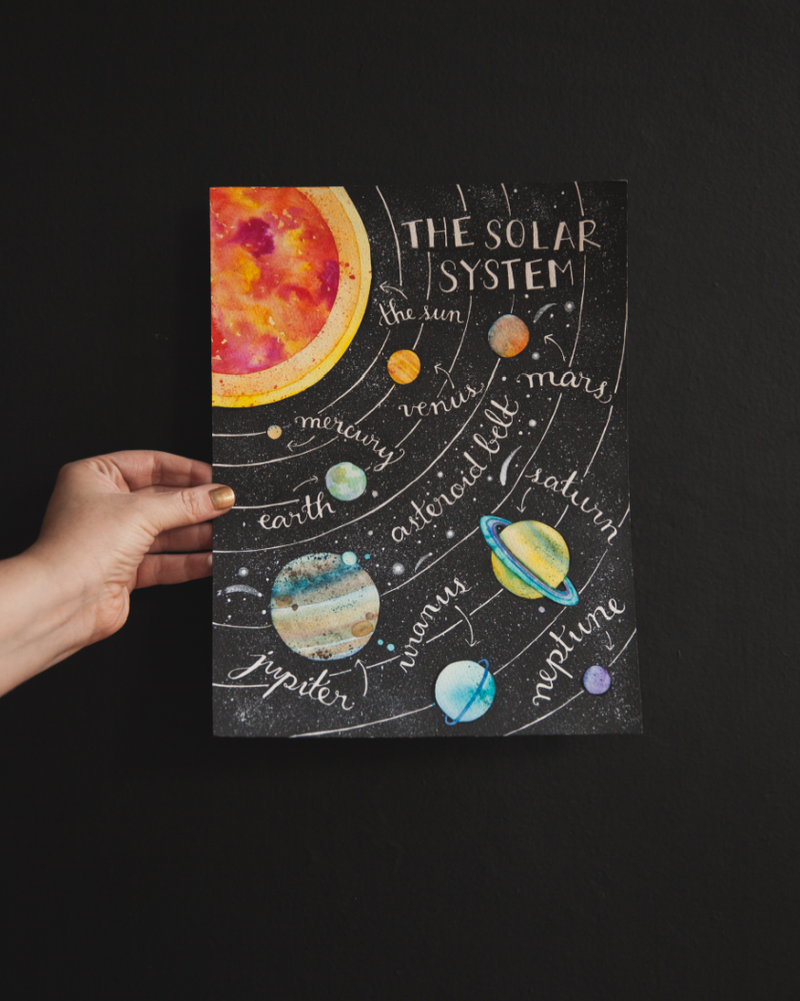 THE SOLAR
SYSTEM
the sun
mars
venus
mercury
asteroid belt
earth
saturn
uranus
neptune
jupiter